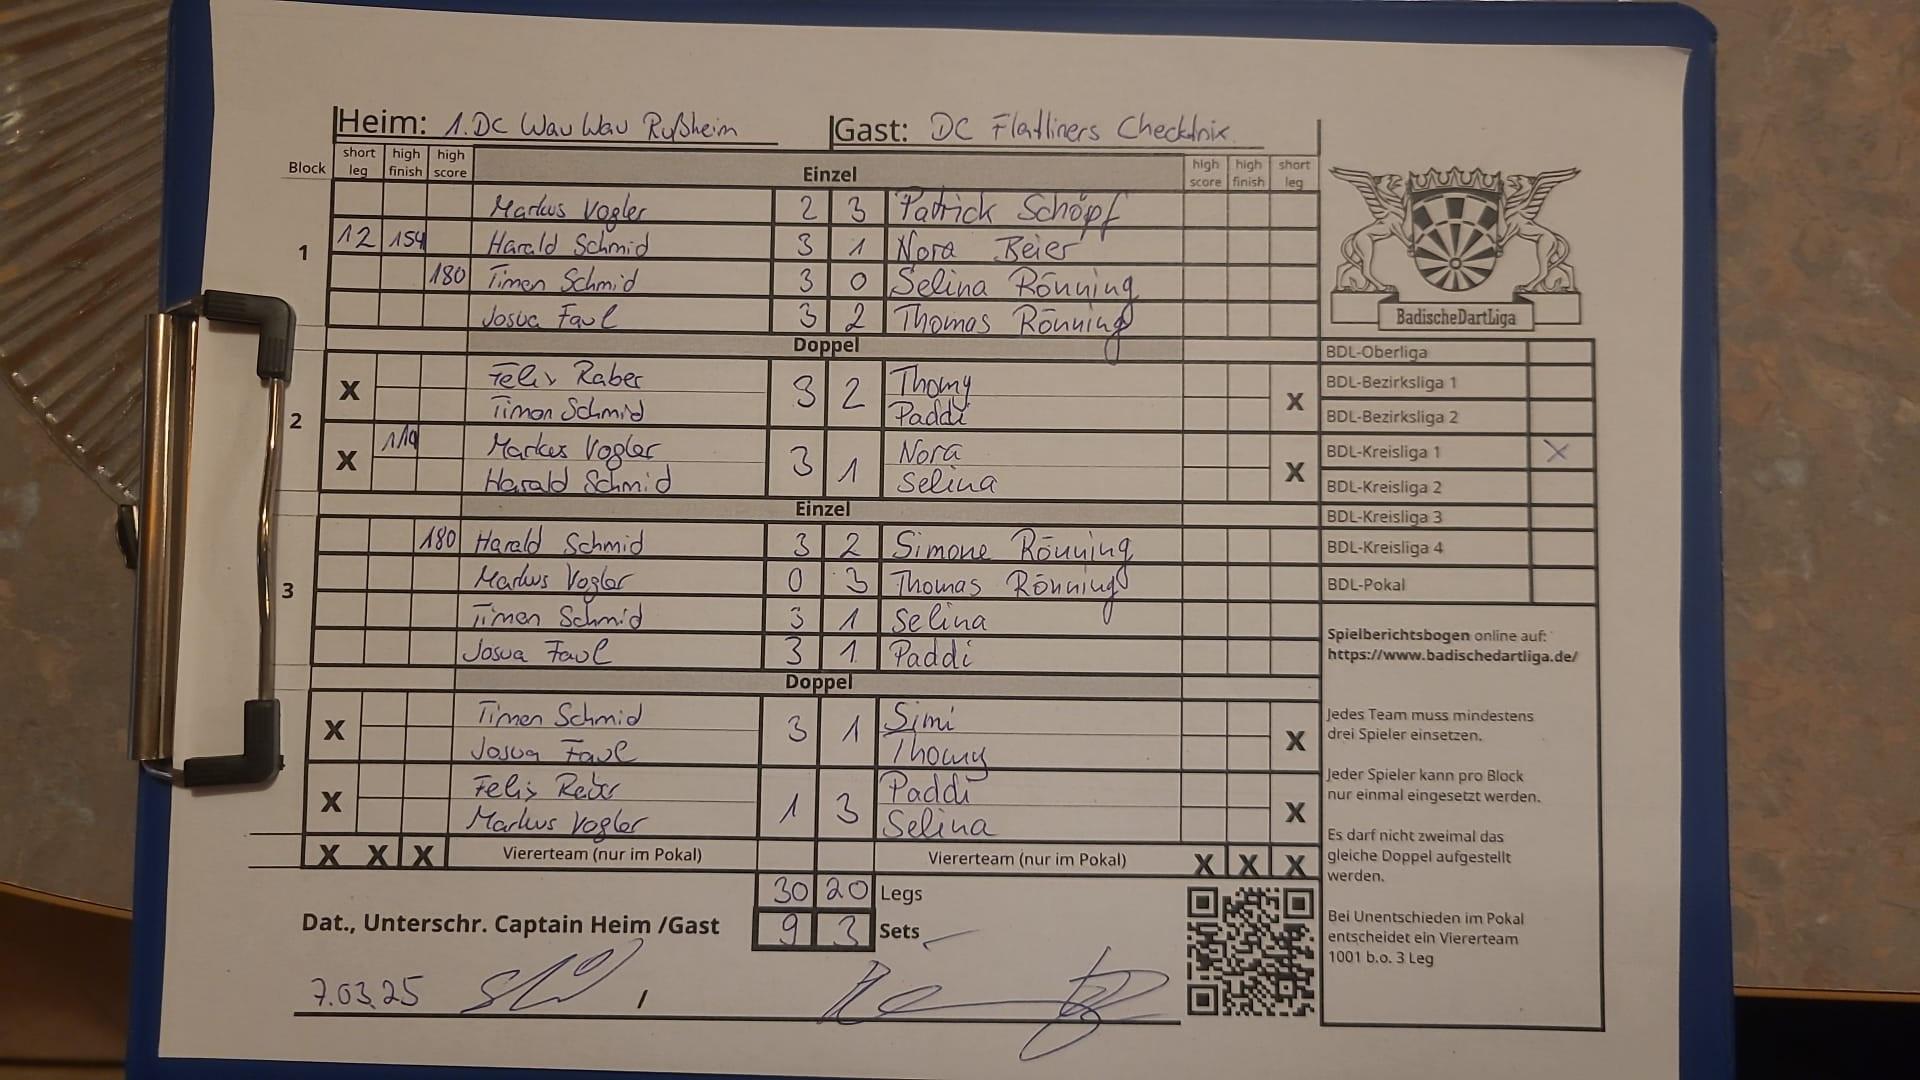 Heim: 1. DC Wau Wau Rußheim Gast: DC Flatliners Checktnix
Block short leg high finish high score Einzel high score high finish short leg
1
Markus Vogler 2 3 Patrick Schöpf
12 154 Harald Schmid 3 1 Nora Beier
180 Timon Schmid 3 0 Selina Rönning
Josua Faul 3 2 Thomas Rönning
Doppel
2
X Felix Raber 3 2 Thomy X
Timon Schmid Paddi
X 119 Markus Vogler 3 1 Nora X
Harald Schmid Selina
Einzel
3
180 Harald Schmid 3 2 Simone Rönning
Markus Vogler 0 3 Thomas Rönning
Timon Schmid 3 1 Selina
Josua Faul 3 1 Paddi
Doppel
X Timon Schmid 3 1 Simi X
Josua Faul Thomy
X Felix Raber 1 3 Paddi X
Markus Vogler Selina
X X X Viererteam (nur im Pokal) Viererteam (nur im Pokal) X X X
30 20 Legs
Dat., Unterschr. Captain Heim /Gast 9 3 Sets
7.03.25 /
BadischeDartLiga
BDL-Oberliga
BDL-Bezirksliga 1
BDL-Bezirksliga 2
BDL-Kreisliga 1 X
BDL-Kreisliga 2
BDL-Kreisliga 3
BDL-Kreisliga 4
BDL-Pokal
Spielberichtsbogen online auf:
https://www.badischedartliga.de/
Jedes Team muss mindestens
drei Spieler einsetzen.
Jeder Spieler kann pro Block
nur einmal eingesetzt werden.
Es darf nicht zweimal das
gleiche Doppel aufgestellt
werden.
Bei Unentschieden im Pokal
entscheidet ein Viererteam
1001 b.o. 3 Leg